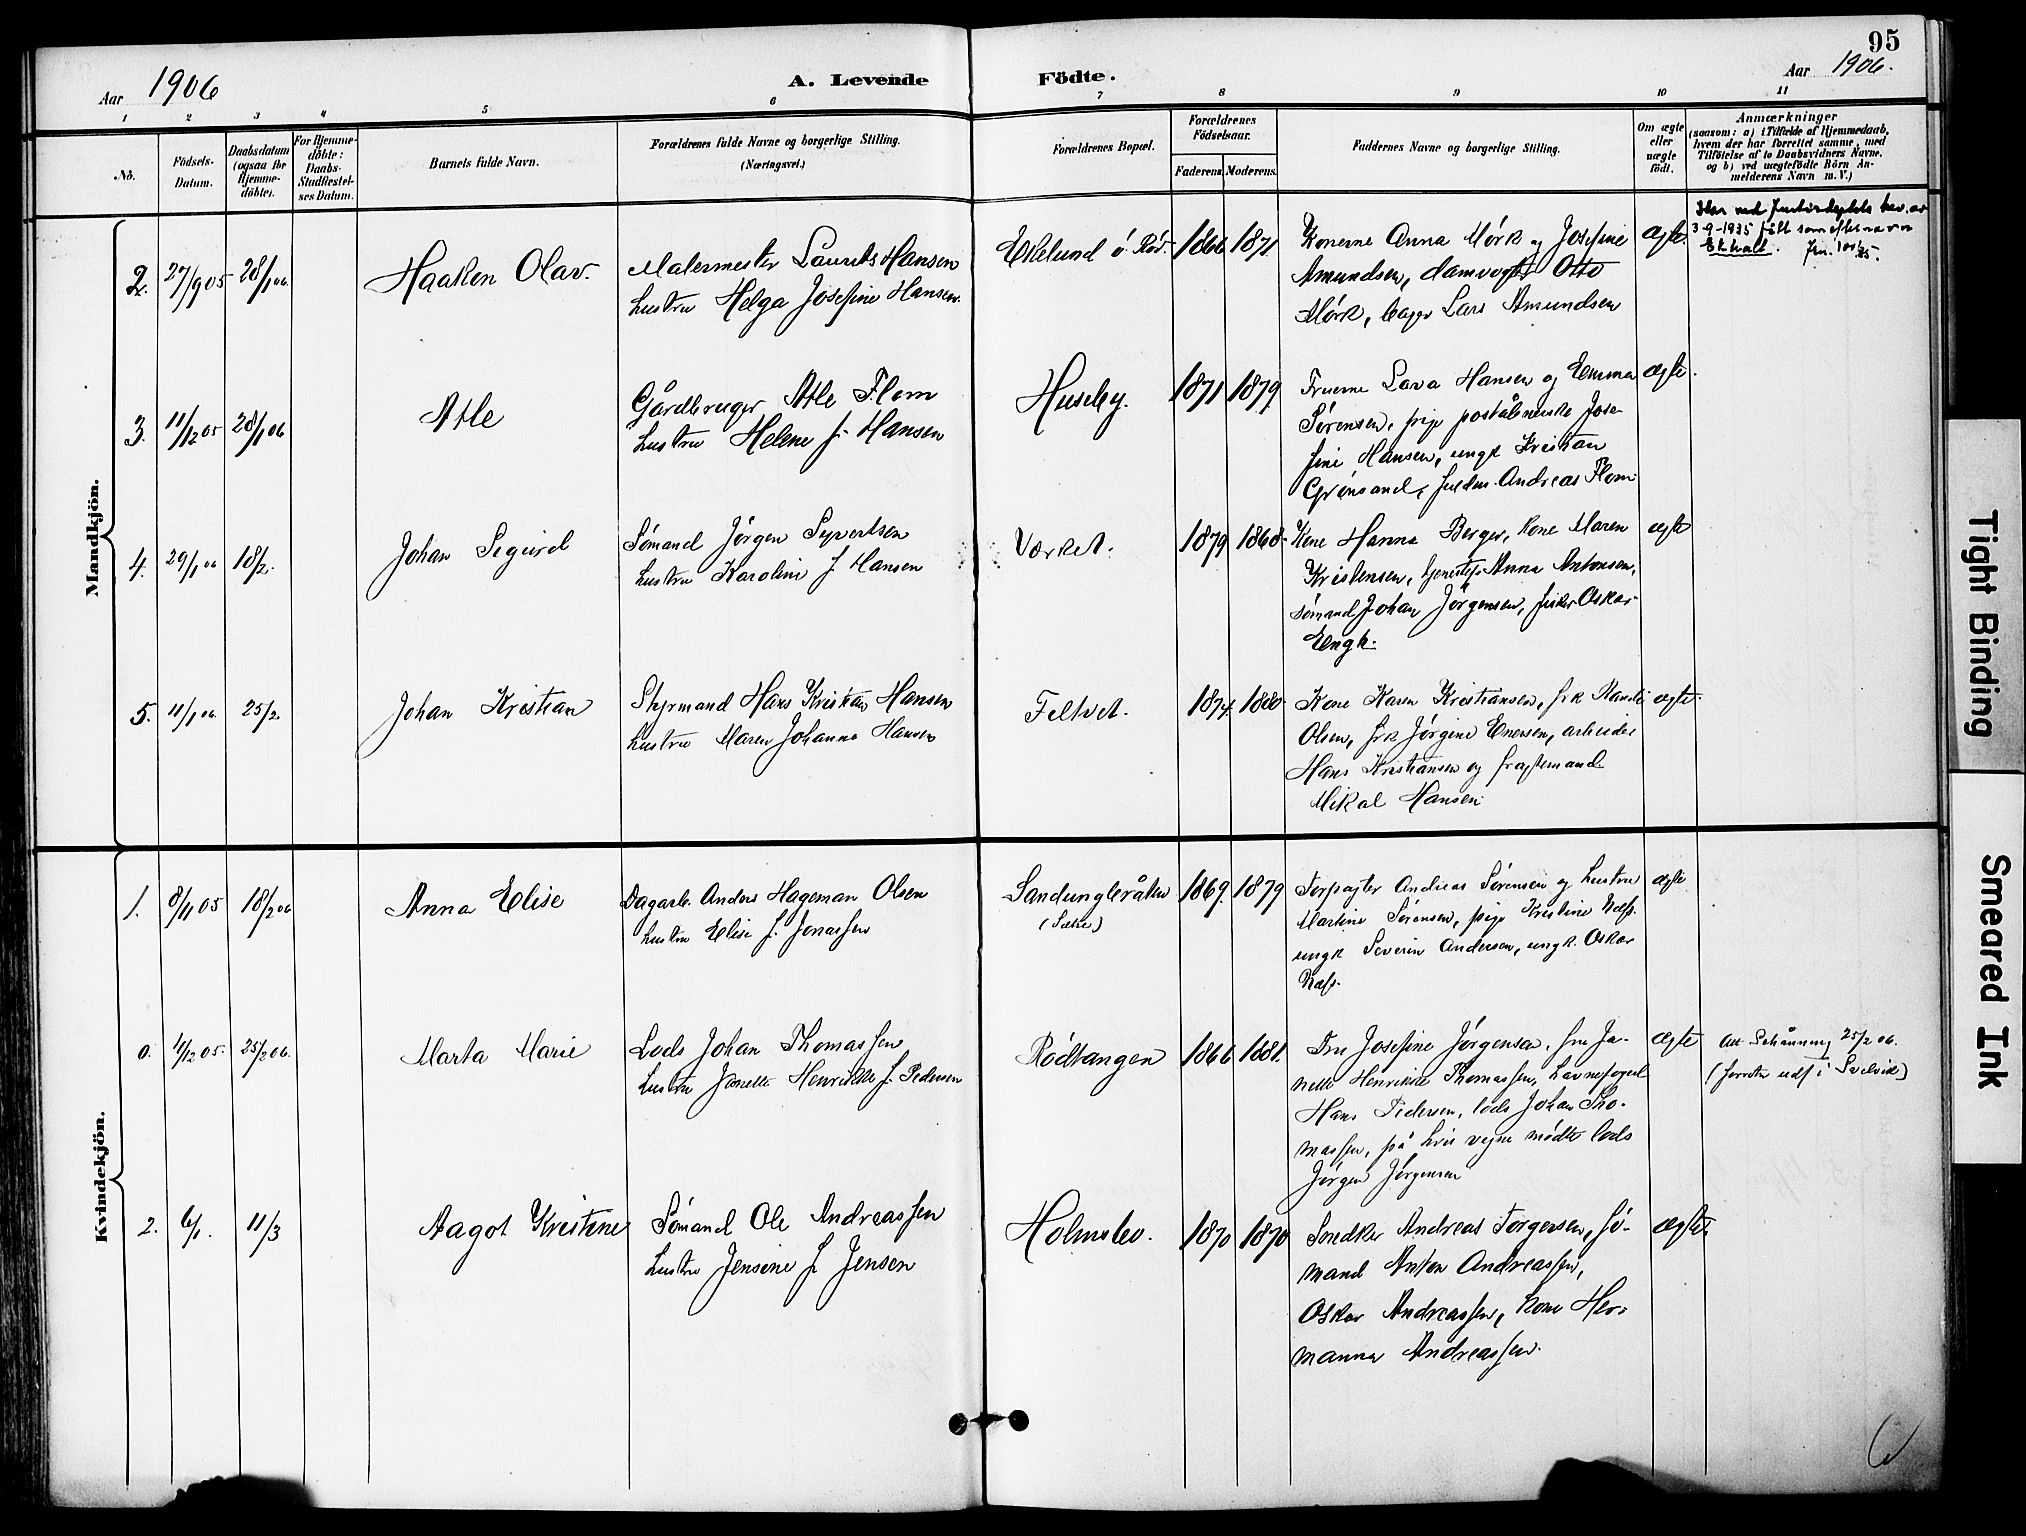 95
Aar 1906
A. Levende Födte.
Aar 1906.
1 2 3 4 5 6 7 8 9 10 11
No.
Födsels-Datum.
Daabsdatum (ogsaa for Hjemme-döbte).
For Hjemme-döbte: Daabs-Stadfæstel-ses Datum.
Barnets fulde Navn.
Forældrenes fulde Navne og borgerlige Stilling.
(Næringsvei.)
Forældrenes Bopæl.
Forældrenes Födselsaar.
Faderens Moderens.
Faddernes Navne og borgerlige Stilling.
Om ægte eller uægte födt.
Anmærkninger
(saasom: a) i Tilfælde af Hjemmedaab,
hvem der har forrettet samme, med
Tilföielse af to Daabsvidners Navne,
og b) ved uægtefödte Börn An-
melderens Navn m. V.)
Mandkjön.
2. 27/9 05 28/1 06. Haakon Olav. Malermester Laurits Hansen
hustru Helga Josefine Hansen.
Ekelund ö. Röd. 1866 1871 Konerne Anna Mörk og Josefine
Amundsen, damvogt Otto
Mörk, bager Lars Amundsen
ægte.
Har ved Justisdeptets bev. av
3-9-1935 fått som efternavn
Ekhall.
3. 11/12 05 28/1 06 Atle Gårdbruger Atle Flom
hustru Helene f. Hansen
Huseby. 1871 1879 Fruerne Lava Hansen og Emma
Sörensen, pige postålnerske Jose-
fine Hansen, ungk Kristian
Grönsand, Andreas Flom
ægte.
4. 29/1 06 18/2. Johan Sigurd Sömand Jörgen Syvertsen
hustru Karoline f Hansen
Værket. 1879 1868. Kone Hanna Berger, kone Maren
Kristensen, tjenestep Anna Antonsen,
sömand Johan Jörgensen, fisker Oskar
Engh.
ægte
5. 11/1 06. 25/2. Johan Kristian Styrmand Hans Kristian Hansen
hustru Maren Johanna Hansen
Feltvet. 1874. 1880. Kone Karen Kristiansen, frk Randi
Olsen, frk Jörgine Enersen, arbeider
Hans Kristiansen og fragtemand
Mikal Hansen.
ægte.
Kvindekjön.
1. 8/11 05 18/2 06 Anna Elise Dagarb. Anders Hageman Olsen
hustru Elise f. Jonassen
Sandungbråten
(Sætre)
1869. 1879 Forpagter Andreas Sörensen og hustru
Martine Sörensen, pige Kristine Næss.
ungk Severin Andersen, ungk. Oskar
Næss.
ægte
0. 4/12 05. 25/2 06. Marta Marie Lods Johan Thomassen
hustru Janette Henrikke f. Pedersen
Rödtangen 1866 1881. Fru Josefine Jörgensen, fru Ja-
nette Henrikke Thomassen, havnefoged
Hans Pedersen, lods Johan Tho-
massen, på hvis vegne mödte lods
Jörgen Jörgensen
ægte
Att Schanning 25/2 06.
(forretn udf i Svelvik)
2. 6/1. 11/3 Aagot Kristine Sömand Ole Andreassen
hustru Jensine f Jensen
Holmsbo. 1870 1870 Snedker Andreas Torgersen, Sö-
mand Anton Andreassen,
Oskar Andreassen, kone Her-
manna Andreassen.
ægte.
Tight Binding
Smeared Ink